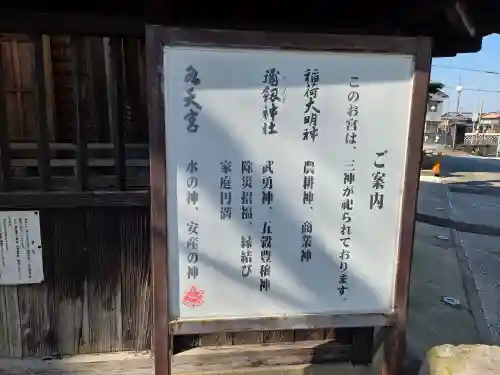 ご案内
このお宮は、三神が祀られております。
稲荷大明神 農耕神、商業神
劔神社 武勇神、五穀豊穣神
除災招福、縁結び
家庭円満
天宮 水の神、安産の神